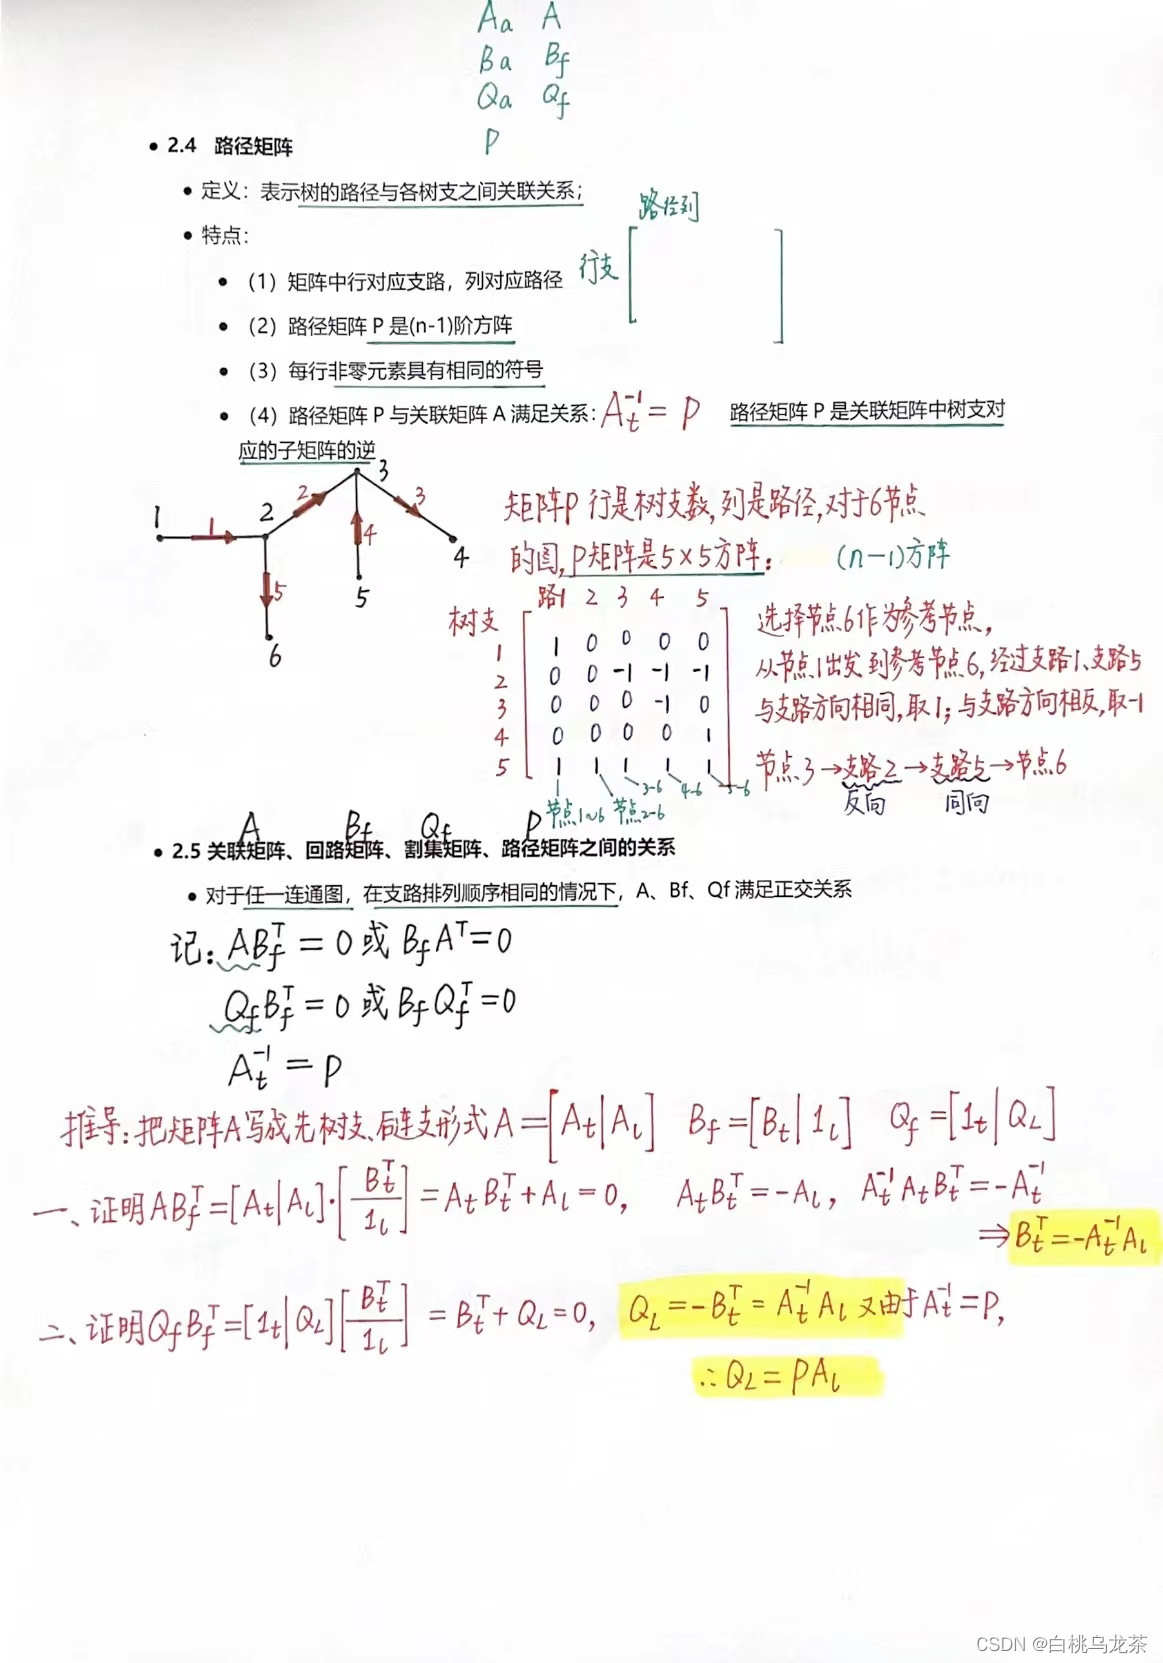 Aa A
Ba Bf
Qa Qf
P
• 2.4 路径矩阵
• 定义：表示树的路径与各树支之间关联关系；
• 特点：
路径列
行支
• （1）矩阵中行对应支路，列对应路径
• （2）路径矩阵 P 是(n-1)阶方阵
• （3）每行非零元素具有相同的符号
• （4）路径矩阵 P 与关联矩阵 A 满足关系：At⁻¹ = P 路径矩阵 P 是关联矩阵中树支对
应的子矩阵的逆
1 1 2 2 3 3 4 4 5 5 6
矩阵P 行是树支数,列是路径,对于6节点
的图,P矩阵是5×5方阵: (n-1)方阵
路1 2 3 4 5
树支
1 1 0 0 0 0
2 0 0 -1 -1 -1
3 0 0 0 -1 0
4 0 0 0 0 1
5 1 1 1 1 1
节点1~6 节点2-6 3-6 4-6 5-6
选择节点6作为参考节点,
从节点1出发到参考节点6,经过支路1、支路5
与支路方向相同,取1;与支路方向相反,取-1
节点3→支路2→支路5→节点6
反向 同向
A Bf Qf P
• 2.5 关联矩阵、回路矩阵、割集矩阵、路径矩阵之间的关系
• 对于任一连通图，在支路排列顺序相同的情况下，A、Bf、Qf 满足正交关系
记: ABfᵀ = 0 或 BfAᵀ=0
QfBfᵀ = 0 或 BfQfᵀ=0
At⁻¹ = P
推导:把矩阵A写成先树支、后连支形式 A=[At|Al] Bf=[Bt|1l] Qf=[1t|QL]
一、证明ABfᵀ=[At|Al]·[Btᵀ/1l]=AtBtᵀ+Al=0, AtBtᵀ=-Al, At⁻¹AtBtᵀ=-At⁻¹
⇒Btᵀ=-At⁻¹Al
二、证明QfBfᵀ=[1t|QL][Btᵀ/1l]=Btᵀ+QL=0, QL=-Btᵀ=At⁻¹Al 又由于At⁻¹=P,
∴QL=PAl
CSDN @白桃乌龙茶